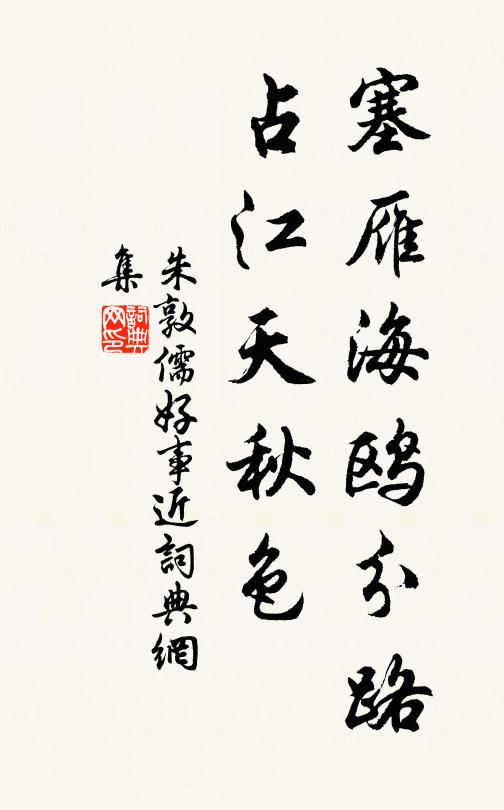 塞雁海鸥分路
占江天秋色
朱敦儒好事近詞典網
集
詞典
网印